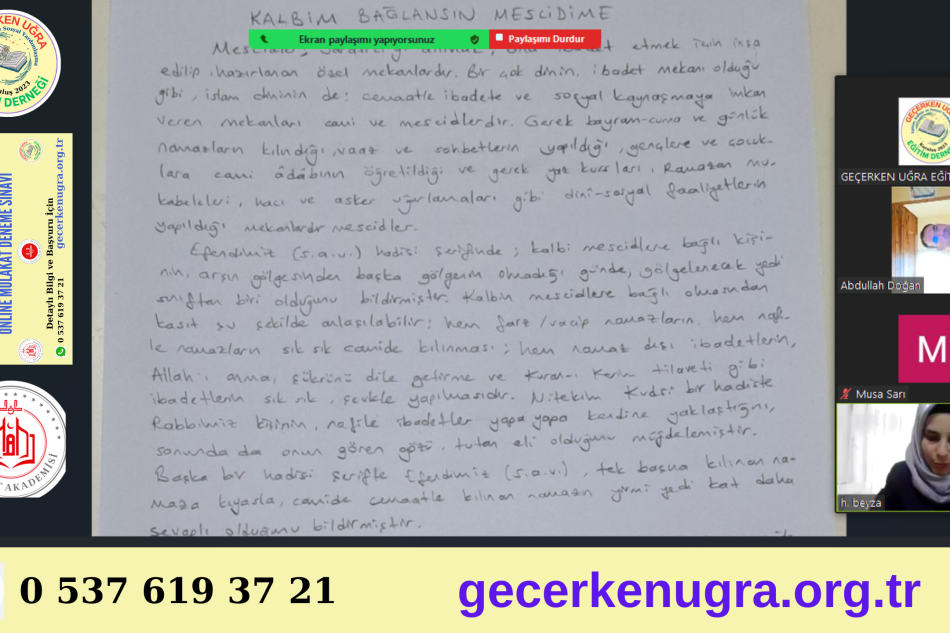 KALBİM BAĞLANSIN MESCİDİME
Ekran paylaşımı yapıyorsunuz
Paylaşımı Durdur
etmek için inşa
edilip, hazırlanan özel mekanlardır. Bir çok dinin, ibadet mekanı olduğu
gibi, islam dininin de; cemaatle ibadete ve sosyal kaynaşmaya imkan
veren mekanları cami ve mescidlerdir. Gerek bayram-cuma ve günlük
namazların kılındığı, vaaz ve sohbetlerin yapıldığı, gençlere ve çocuk-
lara cami âdâbının öğretildiği ve gerek yaz kursları, Ramazan mu-
kabeleleri, hacı ve asker uğurlamaları gibi dini-sosyal faaliyetlerin
yapıldığı mekanlardır mescidler.
Efendimiz (s.a.v.) hadisi şerifinde; kalbi mescidlere bağlı kişi-
nin, arşın gölgesinden başka gölgenin olmadığı günde, gölgelenecek yedi
sınıftan biri olduğunu bildirmiştir. Kalbin mescidlere bağlı olmasından
kasıt şu şekilde anlaşılabilir; hem farz/vacip namazların, hem nafi-
le namazların sık sık camide kılınması; hem namaz dışı ibadetlerin,
Allah'ı anma, şükrünü dile getirme ve Kuran-ı Kerim tilaveti gibi
ibadetlerin sık sık, şevkle yapılmasıdır. Nitekim Kudsi bir hadiste
Rabbimiz kişinin, nafile ibadetler yapa yapa kendine yaklaştığını,
sonunda da onun gören gözü tutan eli olduğunu müjdelemiştir.
Başka bir hadisi şerifte Efendimiz (s.a.v.) tek başına kılınan na-
maza kıyasla, camide cemaatle kılınan namazın yirmi yedi kat daha
sevaplı olduğunu bildirmiştir.
ONLINE MÜLAKAT DENEME SINAVI
Detaylı Bilgi ve Başvuru İçin
gecerkenugra.org.tr
0 537 619 37 21
AKADEMİSİ
GEÇERKEN UĞRA EĞİT
Abdullah Doğan
M
Musa Sarı
h. beyza
0 537 619 37 21
gecerkenugra.org.tr